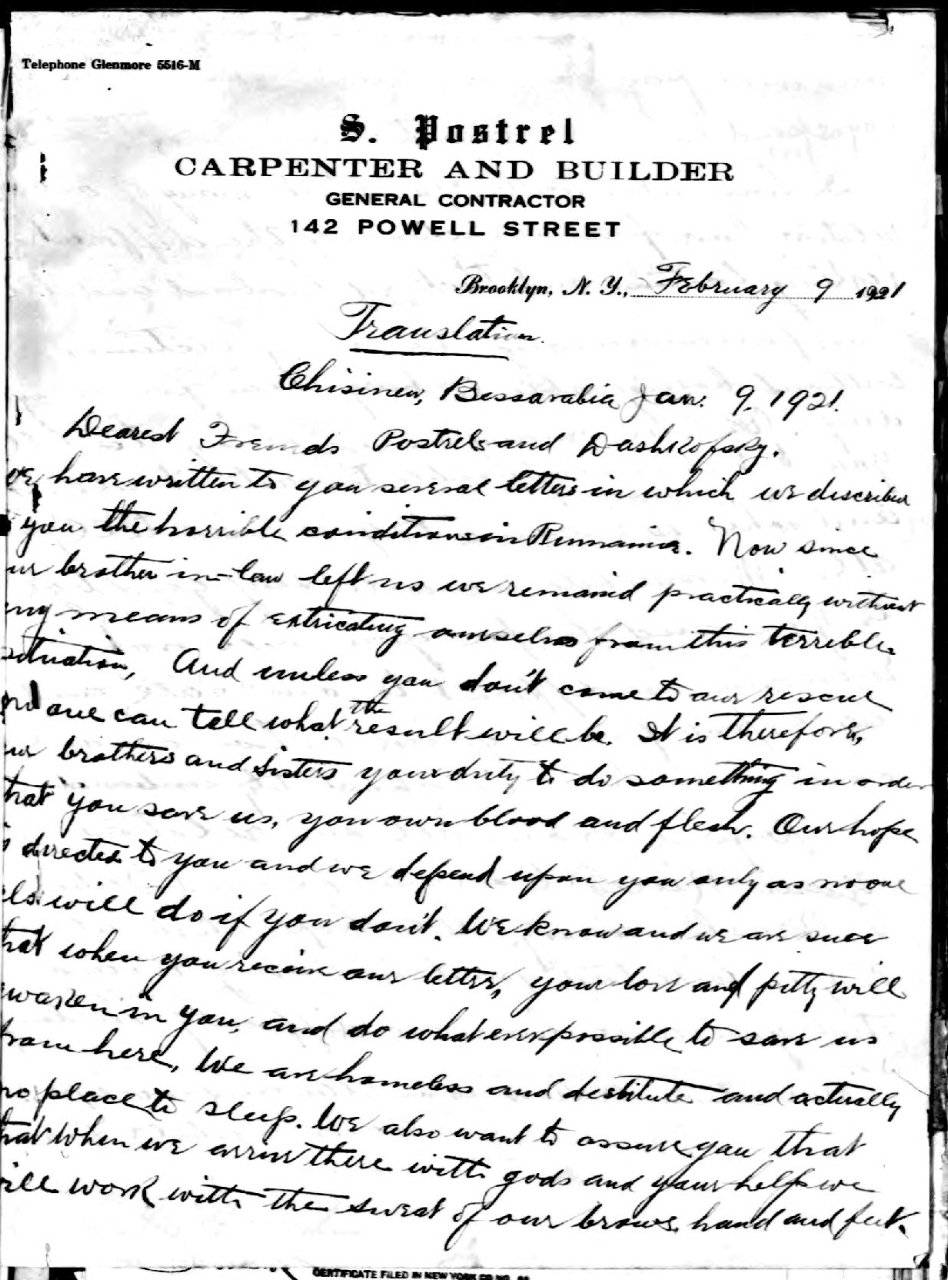 Telephone Glenmore 5516-M
S. Postrel
CARPENTER AND BUILDER
GENERAL CONTRACTOR
142 POWELL STREET
Brooklyn, N. Y., February 9 1921
Translation
Chisineu, Bessarabia Jan. 9, 1921.
Dearest Friends Postrels and Dashkofsky.
we have written to you several letters in which we described
you the horrible conditions in Rumania. Now since
ur brother-in-law left us we remained practically without
any means of extricating ourselves from this terrible
situation, And unless you don't come to our rescue
no one can tell what the result will be. It is therefore,
ur brothers and sisters your duty to do something in order
that you save us, you own blood and flesh. Our hope
is directed to you and we depend upon you only as no one
els will do if you don't. We know and we are sure
that when you receive our letter, your love and pitty will
awaken in you, and do whatever possible to save us
from here, We are homeless and destitute and actually
no place to sleep. We also want to assure you that
that when we arrive there with gods and your help we
will work with the sweat of our brows, hand and feet.
CERTIFICATE FILED IN NEW YORK CO NO.